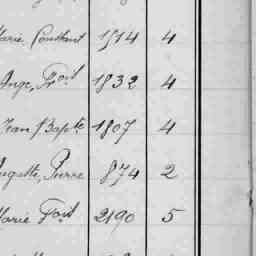 Marie Constant 1514 4
Ange, Frois 1832 4
Jean Bapte 1807 4
Auguste, Pierre 874 2
Marie Fois 2190 5